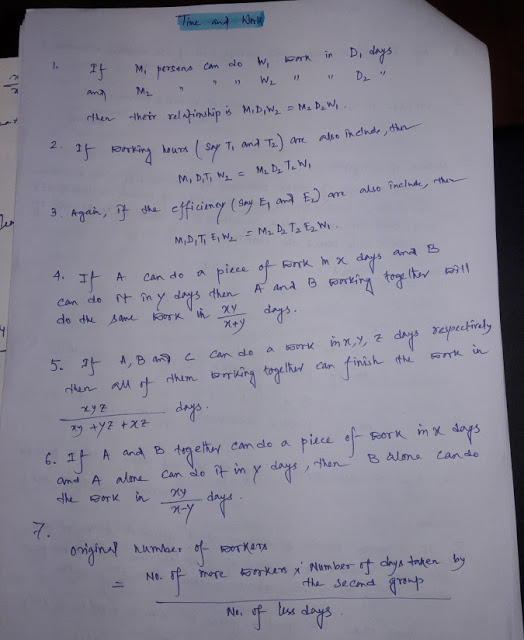 Time and Work
1. If M₁ persons can do W₁ work in D₁ days
and M₂ " " " W₂ " " D₂ "
then their relationship is M₁D₁W₂ = M₂D₂W₁.
2. If working hours (say T₁ and T₂) are also include, then
M₁D₁T₁W₂ = M₂D₂T₂W₁
3. Again, if the efficiency (say E₁ and E₂) are also include, then
M₁D₁T₁E₁W₂ = M₂D₂T₂E₂W₁.
4. If A can do a piece of work in x days and B
can do it in y days then A and B working together will
do the same work in xy/x+y days.
5. If A, B and C can do a work in x, y, z days respectively
then all of them working together can finish the work in
xyz/xy+yz+xz days.
6. If A and B together can do a piece of work in x days
and A alone can do it in y days, then B alone can do
the work in xy/x-y days.
7.
original number of workers
= No. of more workers x Number of days taken by
the second group
No. of less days.